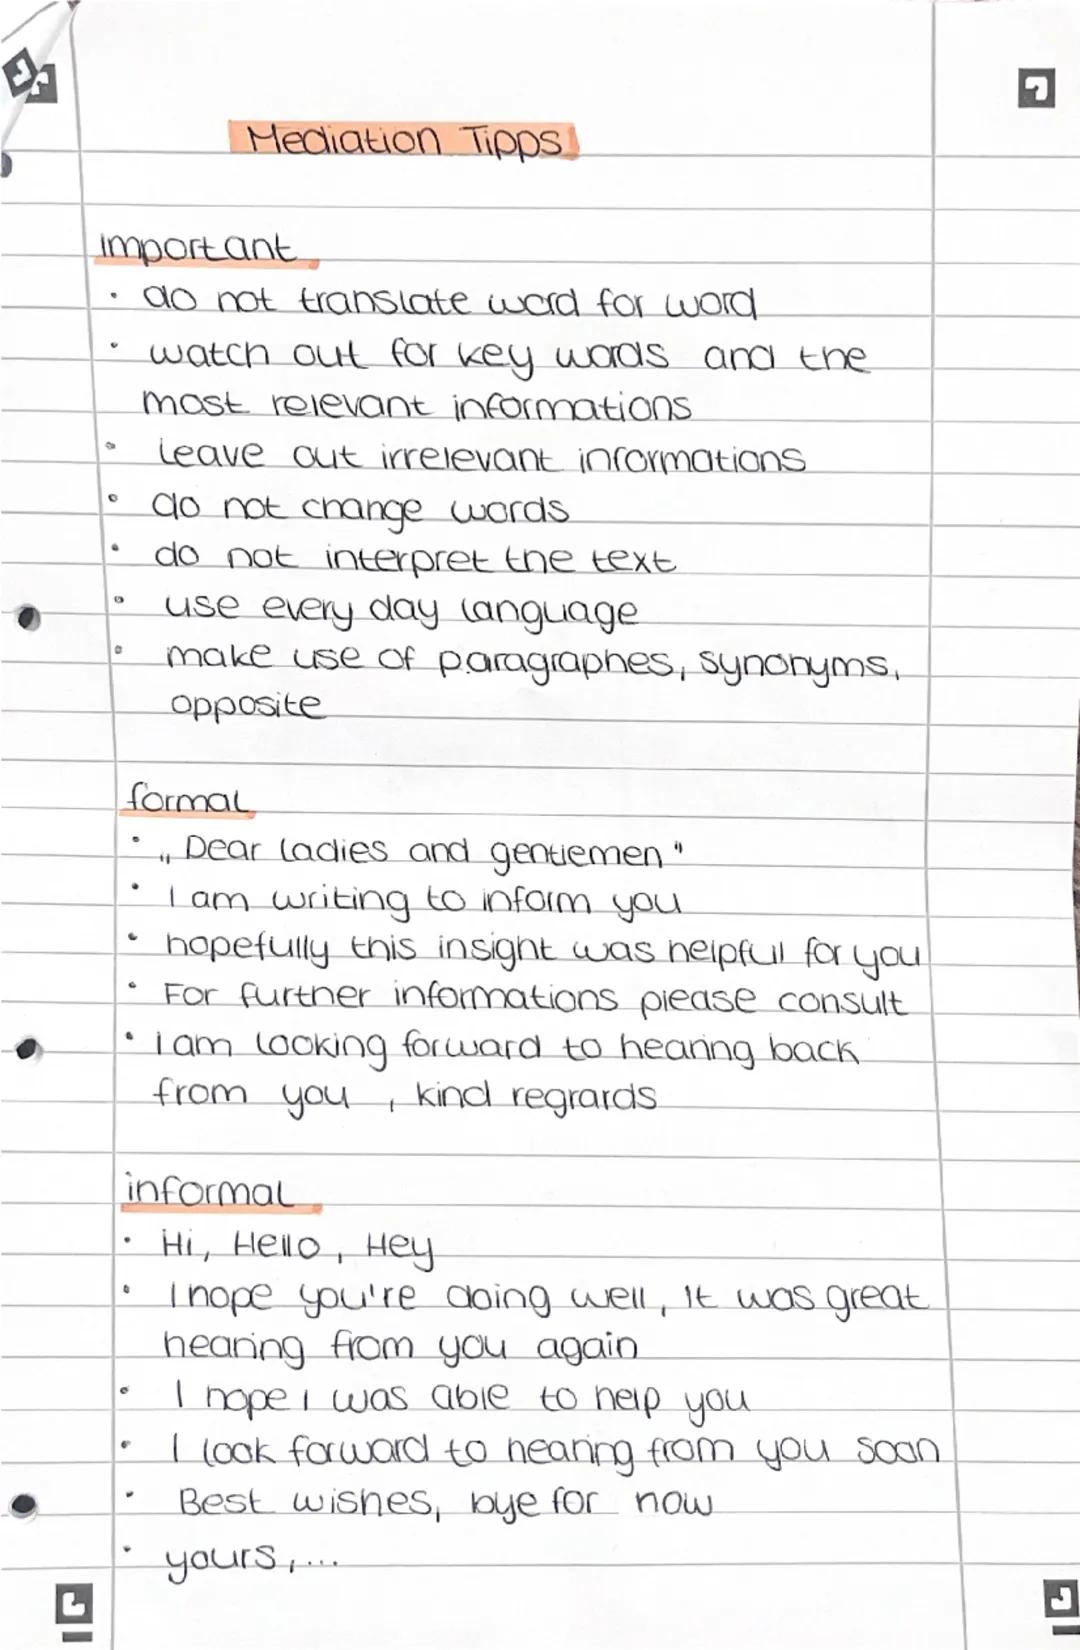 Mediation Tipps
important
· do not translate word for word
· watch out for key words and the
most relevant informations
· Leave out irrelevant informations
· do not change words
· do not interpret the text
· use every day language
· make use of paragraphes, synonyms,
opposite
formal
· „Dear ladies and gentlemen"
· I am writing to inform you
· hopefully this insight was helpful for you
· For further informations please consult
· I am looking forward to hearing back
from you , kind regrards
informal
· Hi, Hello, Hey
· I hope you're doing well, it was great
hearing from you again
· I hope I was able to help you
· I look forward to hearing from you soon
· Best wishes, bye for now
· yours,...